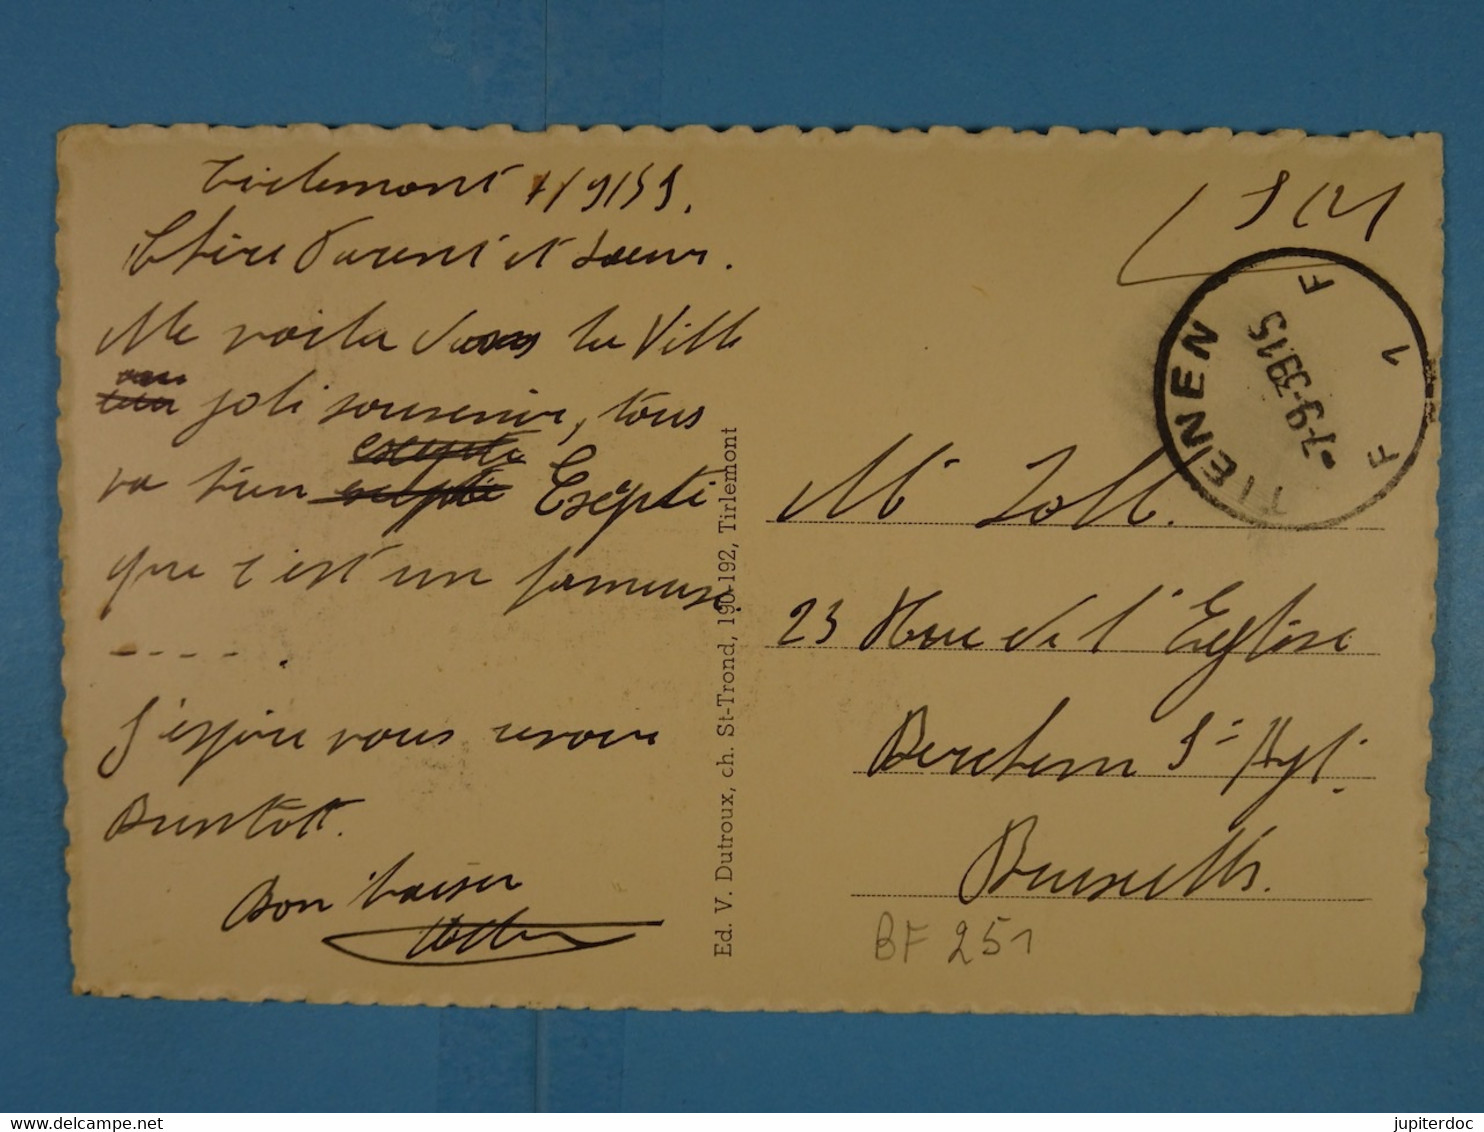 Tirlemont 7/9/39.
Chère Parent et Soeur.
Me voila dans la Ville
joli souvenir, tous
va bien Exépté
que c'est un fameuse
---- .
J'espère vous revoir
Bientôt.
Bon baiser
Ed. V. Dutroux, ch. St-Trond, 190-192, Tirlemont
S M
TIENEN
-7-9-39 15
F 1 F
Mr Zoll.
23 Rue de l'Eglise
Berchem St Agt.
Bruxelles.
BF 251
jupiterdoc